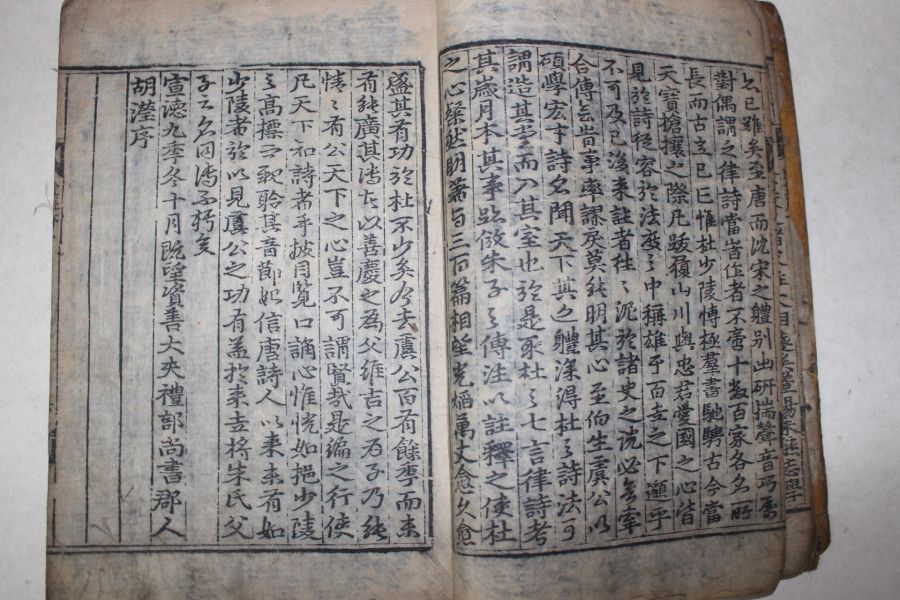 之已難矣至唐而沈宋之體別出研揣聲音巧屬
對偶謂之律詩當時作者不啻十數百家各名所
長而古玄已巳惟杜少陵博極羣書馳騁古今當
天寶搶攘之際乃跋履山川與忠君愛國之心皆
見於詩從容於法度之中稱雄乎百世之下顧乎
不可及已後來註者往〻泥於諸史之說必牽
合傅會皆事率謬戾莫能明其心至伯生虞公以
碩學宏才詩名聞天下其之體深得杜之詩法可
謂造其堂而入其室也於是取杜之七言律詩考
其歲月本其事跡倣朱子之傳注以註釋之使杜
之心粲然明著與三百篇相望光熖萬丈愈久愈
盛其有功於杜不少矣今去虞公百有餘季而未
有能廣其傳者以善慶之為父維吉之為子乃能
惓〻有公天下之心豈不可謂賢哉是編之行使
凡天下知詩者手披目覽口誦心惟恍如挹少陵
之高標而親聆其音節始信唐詩人以來未有如
少陵者於以見虞公之功有益於來者將朱氏父
子之名因傳不朽矣
宣德九季冬十月旣望資善大夫禮部尚書郡人
胡濙序